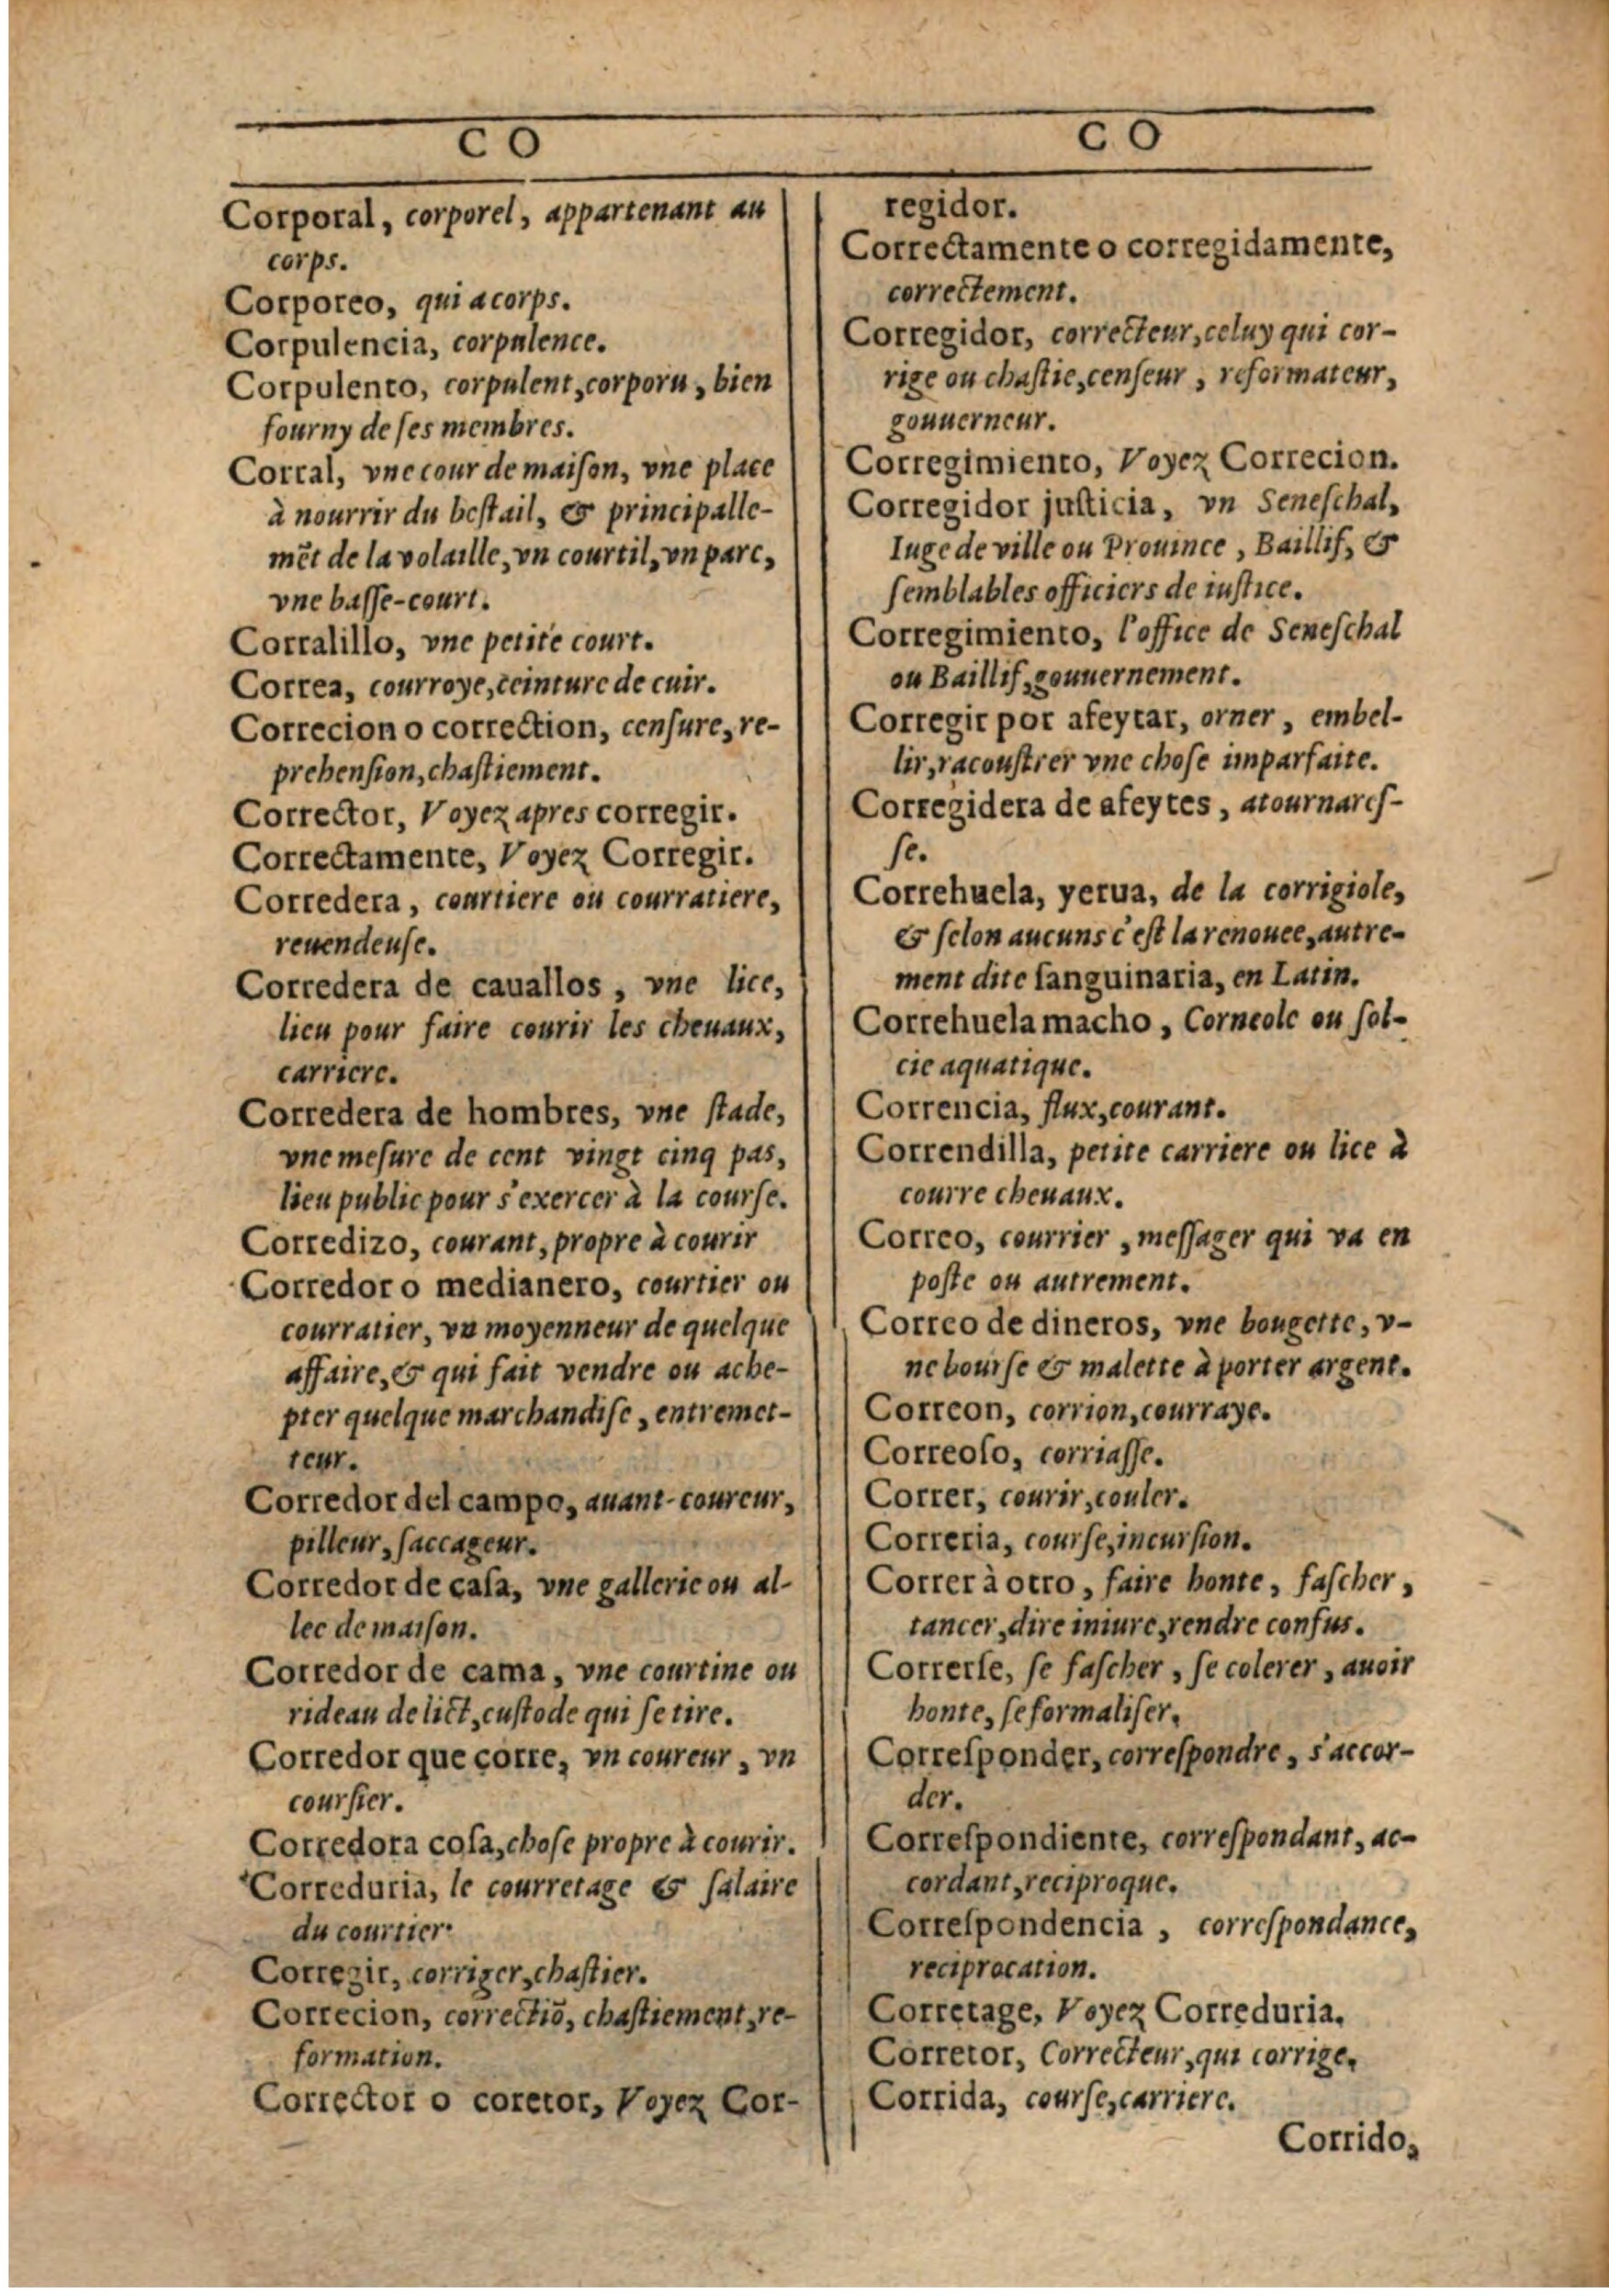 C O
Corporal, corporel, appartenant au
corps.
Corporeo, qui a corps.
Corpulencia, corpulence.
Corpulento, corpulent, corporu, bien
fourny de ſes membres.
Corral, vne cour de maiſon, vne place
à nourrir du beſtail, & principalle-
mẽt de la volaille, vn courtil, vn parc,
vne baſſe-court.
Corralillo, vne petite court.
Correa, courroye, ceinture de cuir.
Correcion o correction, cenſure, re-
prehenſion, chaſtiement.
Corrector, Voyez apres corregir.
Correctamente, Voyez Corregir.
Corredera, courtiere ou courratiere,
reuendeuſe.
Corredera de cauallos, vne lice,
lieu pour faire courir les cheuaux,
carriere.
Corredera de hombres, vne ſtade,
vne meſure de cent vingt cinq pas,
lieu public pour s'exercer à la courſe.
Corredizo, courant, propre à courir
Corredor o medianero, courtier ou
courratier, vn moyenneur de quelque
affaire, & qui fait vendre ou ache-
pter quelque marchandiſe, entremet-
teur.
Corredor del campo, auant-coureur,
pilleur, ſaccageur.
Corredor de caſa, vne gallerie ou al-
lee de maiſon.
Corredor de cama, vne courtine ou
rideau de lict, cuſtode qui ſe tire.
Corredor que corre, vn coureur, vn
courſier.
Corredora coſa, choſe propre à courir.
Correduria, le courretage & ſalaire
du courtier.
Corregir, corriger, chaſtier.
Correcion, correctiõ, chaſtiement, re-
formation.
Corrector o coretor, Voyez Cor-
C O
regidor.
Correctamente o corregidamente,
correctement.
Corregidor, correcteur, celuy qui cor-
rige ou chaſtie, cenſeur, reformateur,
gouuerneur.
Corregimiento, Voyez Correcion.
Corregidor juſticia, vn Seneſchal,
Iuge de ville ou Prouince, Baillif, &
ſemblables officiers de iuſtice.
Corregimiento, l'office de Seneſchal
ou Baillif, gouuernement.
Corregir por afeytar, orner, embel-
lir, racouſtrer vne choſe imparfaite.
Corregidera de afeytes, atournareſ-
ſe.
Correhuela, yerua, de la corrigiole,
& ſelon aucuns c'eſt la renouee, autre-
ment dite ſanguinaria, en Latin.
Correhuela macho, Corneole ou ſol-
cie aquatique.
Correncia, flux, courant.
Correndilla, petite carriere ou lice à
courre cheuaux.
Correo, courrier, meſſager qui va en
poſte ou autrement.
Correo de dineros, vne bougette, v-
ne bourſe & malette à porter argent.
Correon, corrion, courraye.
Correoſo, corriaſſe.
Correr, courir, couler.
Correria, courſe, incurſion.
Correr à otro, faire honte, faſcher,
tancer, dire iniure, rendre confus.
Correrſe, ſe faſcher, ſe colerer, auoir
honte, ſe formaliſer.
Correſponder, correſpondre, s'accor-
der.
Correſpondiente, correſpondant, ac-
cordant, reciproque.
Correſpondencia, correſpondance,
reciprocation.
Corretage, Voyez Correduria.
Corretor, Correcteur, qui corrige.
Corrida, courſe, carriere.
Corrido,